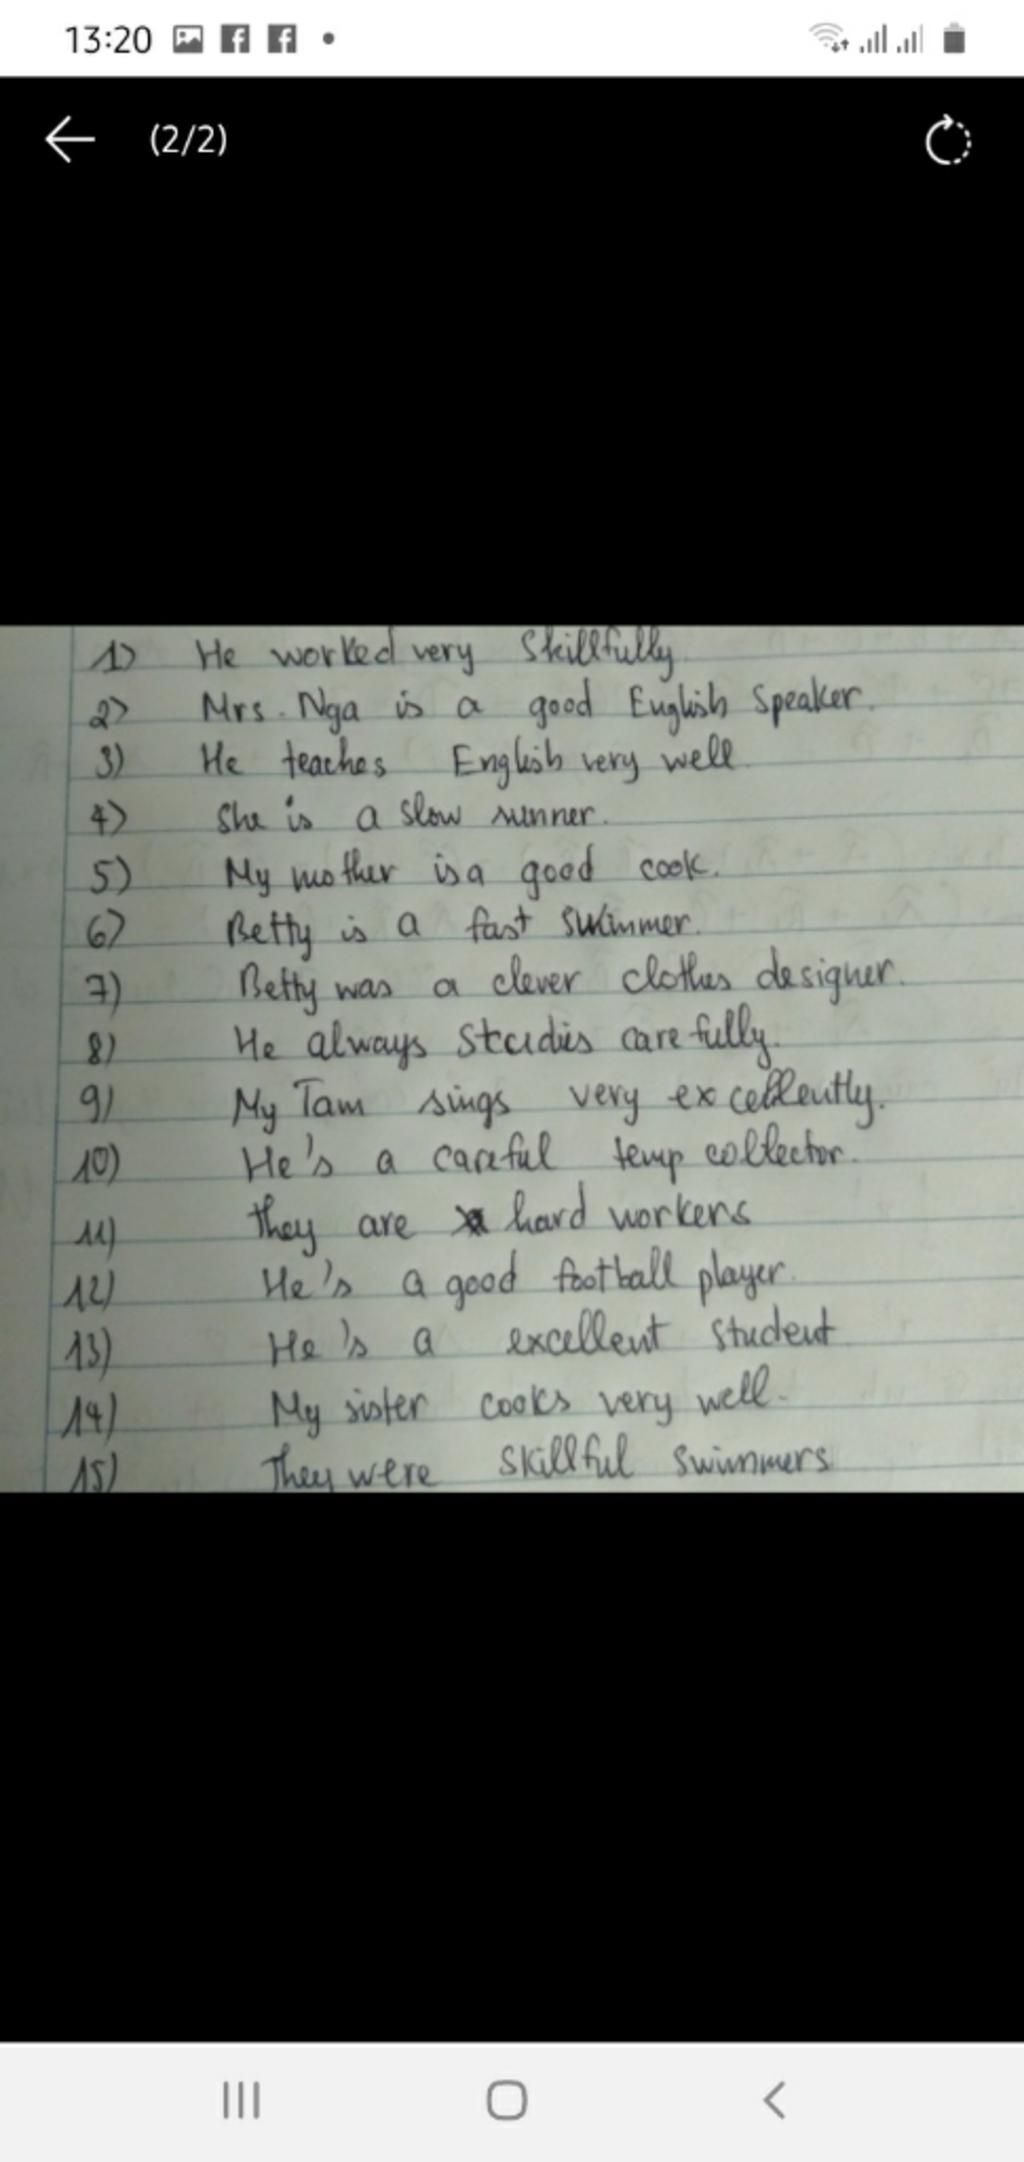 13:20
(2/2)
1) He worked very Skillfully
2) Mrs. Nga is a good English Speaker.
3) He teaches English very well
4) She is a slow runner.
5) My mother is a good cook.
6) Betty is a fast swimmer.
7) Betty was a clever clothes designer.
8) He always Studies carefully.
9) My Tam sings very excellently.
10) He's a careful temp collector.
11) they are hard workers
12) He's a good football player.
13) He's a excellent student
14) My sister cooks very well.
15) They were skillful swimmers